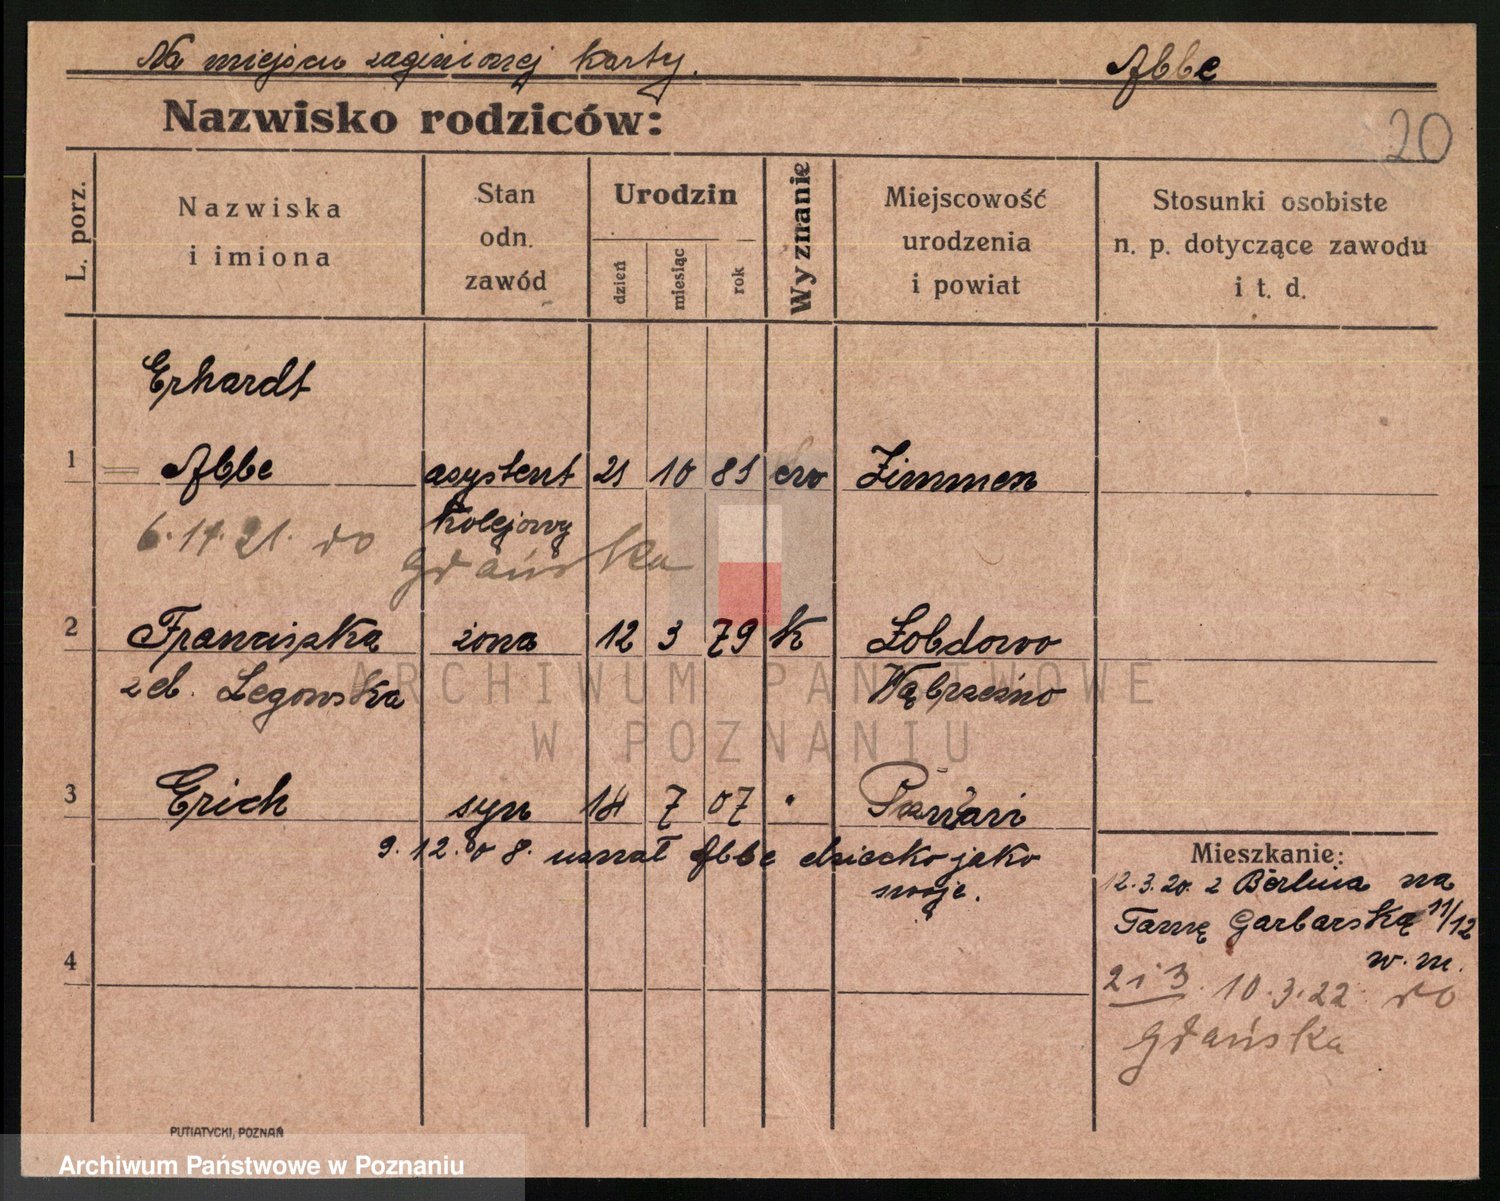 Na miejscu zaginionej karty.
Abbe
Nazwisko rodziców:
20
L. porz.
Nazwiska
i imiona
Stan
odn.
zawód
Urodzin
dzień
miesiąc
rok
Wyznanie
Miejscowość
urodzenia
i powiat
Stosunki osobiste
n. p. dotyczące zawodu
i t. d.
Erhardt
1 Abbe asystent 21 10 81 ew Zimmen
kolejowy
6. 11. 21. do Gdańska
2 Franciszka żona 12 3 79 k Łobdowo
zeb. Legowska Wąbrzeźno
3 Erich syn 14 7 07 " Poznań
9. 12. 08. uznał Abbe dziecko jako
swoje.
4
Mieszkanie:
12. 3. 20. z Berlina na
Tamę Garbarską 11/12
w. m.
2 i 3. 10. 3. 22. do
Gdańska
PUTIATYCKI, POZNAŃ
ARCHIWUM PAŃSTWOWE
W POZNANIU
Archiwum Państwowe w Poznaniu